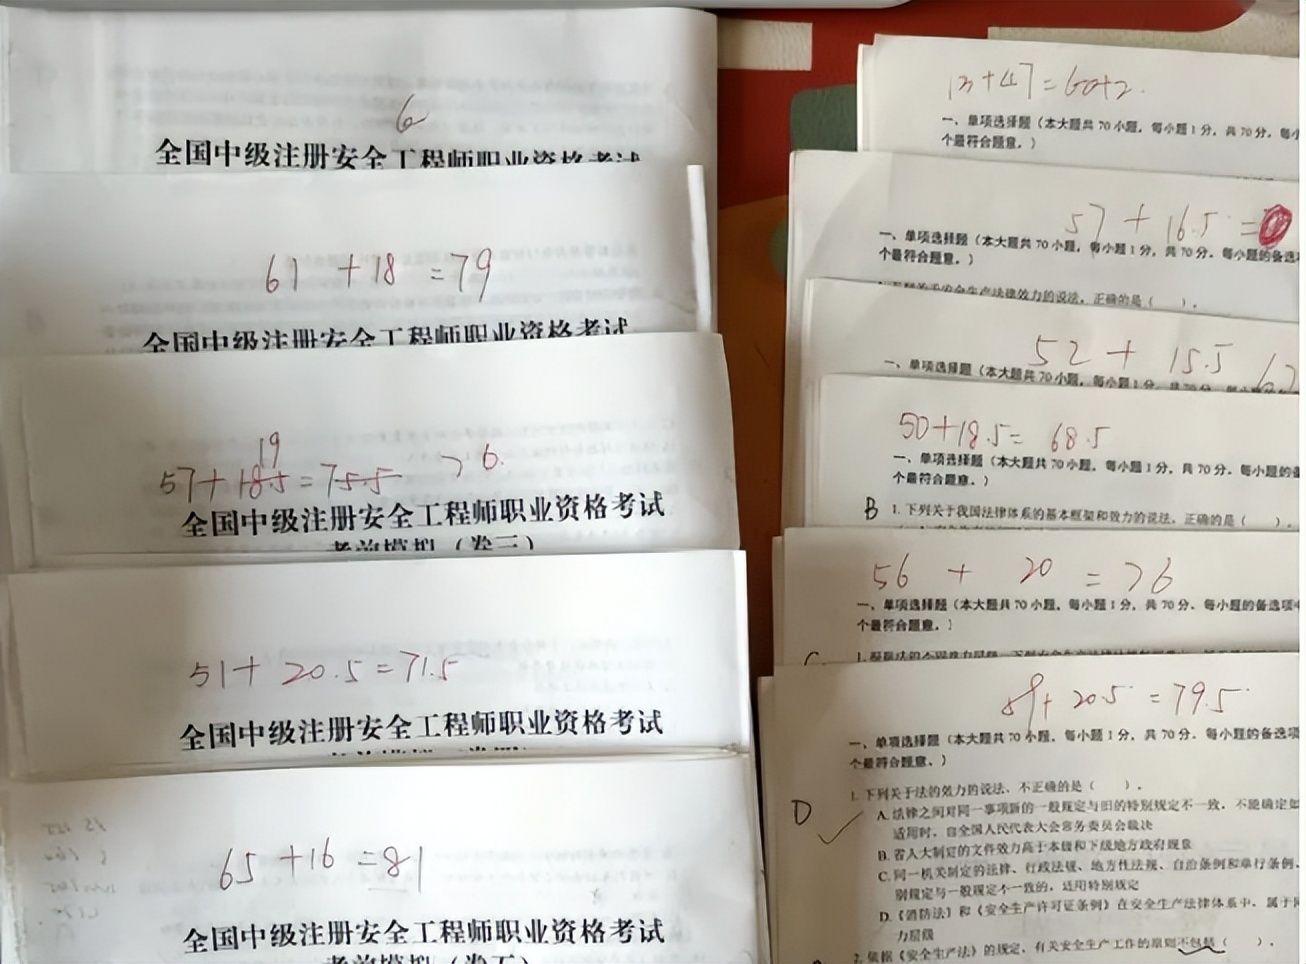 6
全国中级注册安全工程师职业资格考试
61 +18 =79
全国中级注册安全工程师职业资格考试
19
57+18.5=75.5 >6.
全国中级注册安全工程师职业资格考试
考前模拟（卷三）
51+ 20.5=71.5
全国中级注册安全工程师职业资格考试
65 +16 =81
全国中级注册安全工程师职业资格考试
考前模拟（卷五）
13+47=60+2.
一、单项选择题（本大题共 70 小题，每小题 1 分，共 70 分，每小
个最符合题意。）
57 + 16.5 =
一、单项选择题（本大题共 70 小题，每小题 1 分，共 70 分．每小题的备选
个最符合题意。）
法律效力的说法，正确的是（ ）。
52 + 15.5
一、单项选择题（本大题共 70 小题，每小题 1 分，共 70 分
50+18.5= 68.5
一、单项选择题（本大题共 70 小题，每小题 1 分，共 70 分．每小题的备
个最符合题意。）
B 1. 下列关于我国法律体系的基本框架和效力的说法，正确的是（ ）。
56 + 20 = 76
一、单项选择题（本大题共 70 小题，每小题 1 分，共 70 分．每小题的备选项
个最符合题意。）
59+ 20.5 =79.5
一、单项选择题（本大题共 70 小题，每小题 1 分，共 70 分．每小题的备选项
个最符合题意。）
D 1. 下列关于法的效力的说法，不正确的是（ ）。
A. 法律之间对同一事项新的一般规定与旧的特别规定不一致，不能确定如
适用时，由全国人民代表大会常务委员会裁决
B. 省人大制定的文件效力高于本级和下级地方政府规章
C. 同一机关制定的法律、行政法规、地方性法规、自治条例和单行条例、
别规定与一般规定不一致的，适用特别规定
D.《消防法》和《安全生产许可证条例》在安全生产法律体系中，属于同
力层级
2. 依据《安全生产法》的规定，有关安全生产工作的原则不包括（ ）。